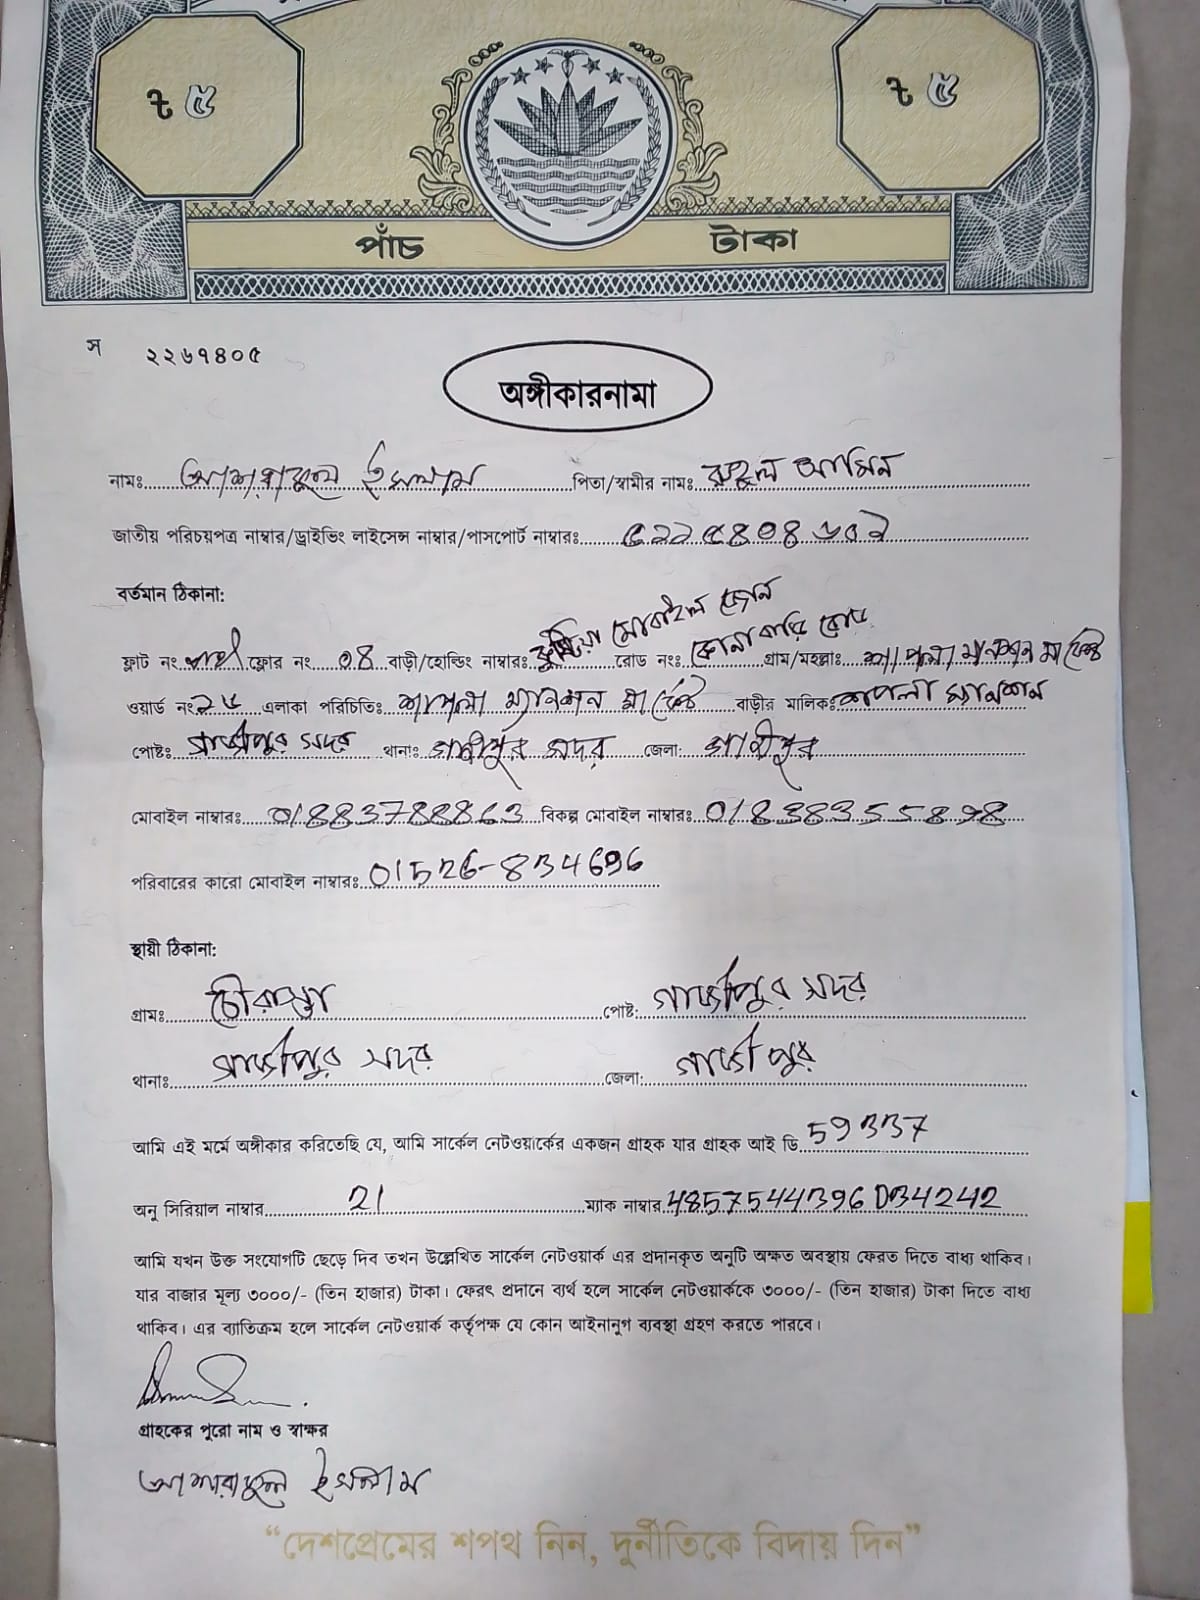 ৳ ৫ ৳ ৫
পাঁচ টাকা
স ২২৬৭৪০৫
অঙ্গীকারনামা
নামঃ আশরাফুল ইসলাম পিতা/স্বামীর নামঃ রুহুল আমিন
জাতীয় পরিচয়পত্র নাম্বার/ড্রাইভিং লাইসেন্স নাম্বার/পাসপোর্ট নাম্বারঃ
বর্তমান ঠিকানা:
ফ্লাট নং ফ্লোর নং ০৪ বাড়ী/হোল্ডিং নাম্বারঃ কুষ্টিয়া মোবাইল জোন রোড নংঃ কোনাবাড়ি রোড গ্রাম/মহল্লাঃ শাপলা ম্যানশন মার্কেট
ওয়ার্ড নং এলাকা পরিচিতিঃ শাপলা ম্যানশন মার্কেট বাড়ীর মালিকঃ শাপলা ম্যানশন
পোষ্টঃ গাজীপুর সদর থানাঃ গাজীপুর সদর জেলা: গাজীপুর
মোবাইল নাম্বারঃ 01883788863 বিকল্প মোবাইল নাম্বারঃ 01838355898
পরিবারের কারো মোবাইল নাম্বারঃ 01526-834696
স্থায়ী ঠিকানা:
গ্রামঃ চৌরাস্তা পোষ্ট: গাজীপুর সদর
থানাঃ গাজীপুর সদর জেলা: গাজীপুর
আমি এই মর্মে অঙ্গীকার করিতেছি যে, আমি সার্কেল নেটওয়ার্কের একজন গ্রাহক যার গ্রাহক আই ডি 59337
অনু সিরিয়াল নাম্বার 21 ম্যাক নাম্বার 4857544396D34242
আমি যখন উক্ত সংযোগটি ছেড়ে দিব তখন উল্লেখিত সার্কেল নেটওয়ার্ক এর প্রদানকৃত অনুটি অক্ষত অবস্থায় ফেরত দিতে বাধ্য থাকিব।
যার বাজার মূল্য ৩০০০/- (তিন হাজার) টাকা। ফেরৎ প্রদানে ব্যর্থ হলে সার্কেল নেটওয়ার্ককে ৩০০০/- (তিন হাজার) টাকা দিতে বাধ্য
থাকিব। এর ব্যাতিক্রম হলে সার্কেল নেটওয়ার্ক কর্তৃপক্ষ যে কোন আইনানুগ ব্যবস্থা গ্রহণ করতে পারবে।
গ্রাহকের পুরো নাম ও স্বাক্ষর
আশরাফুল ইসলাম
“দেশপ্রেমের শপথ নিন, দুর্নীতিকে বিদায় দিন”